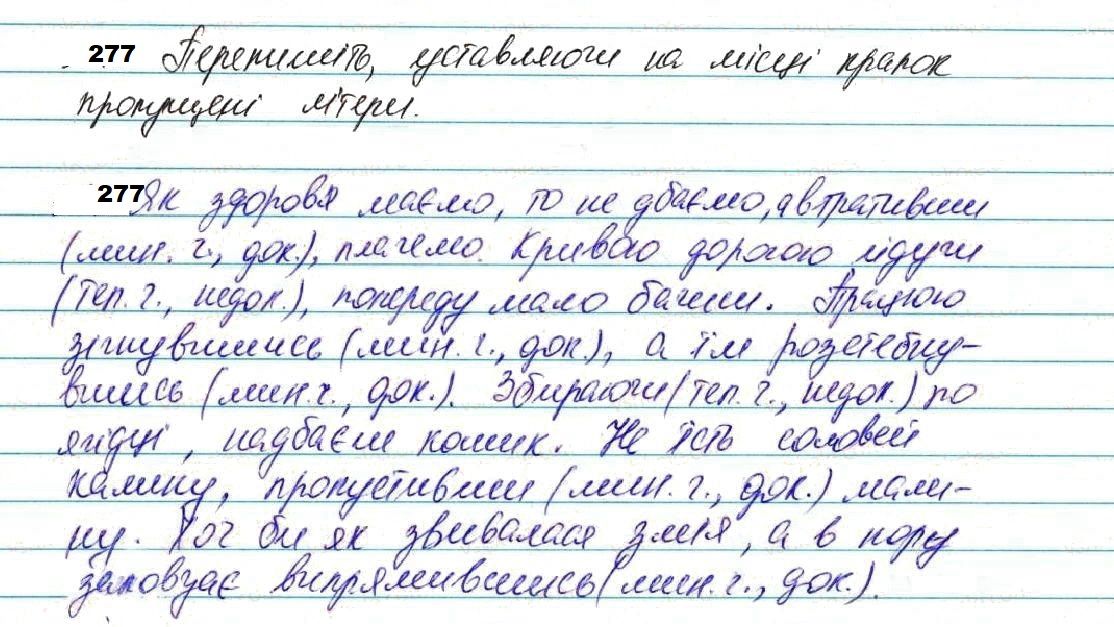 277 Перепишіть, уставляючи на місці крапок
пропущені літери.
277 Як здоровя маємо, то не дбаємо, а втративши
(мин. ч., док.), плачемо. Кривою дорогою їдучи
(теп. ч., недок.), попереду мало бачиш. Працюю
зігнувшись (мин. ч., док.), а їм розстебну-
вшись (мин. ч., док.). Збираючи (теп. ч., недок.) по
ягідці, надбаєш кошик. Не їсть соловей
калину, пропустивши (мин. ч., док.) мали-
ну. Хоч би як звивалася змія, а в нору
заповзає випрямившись (мин. ч., док.).